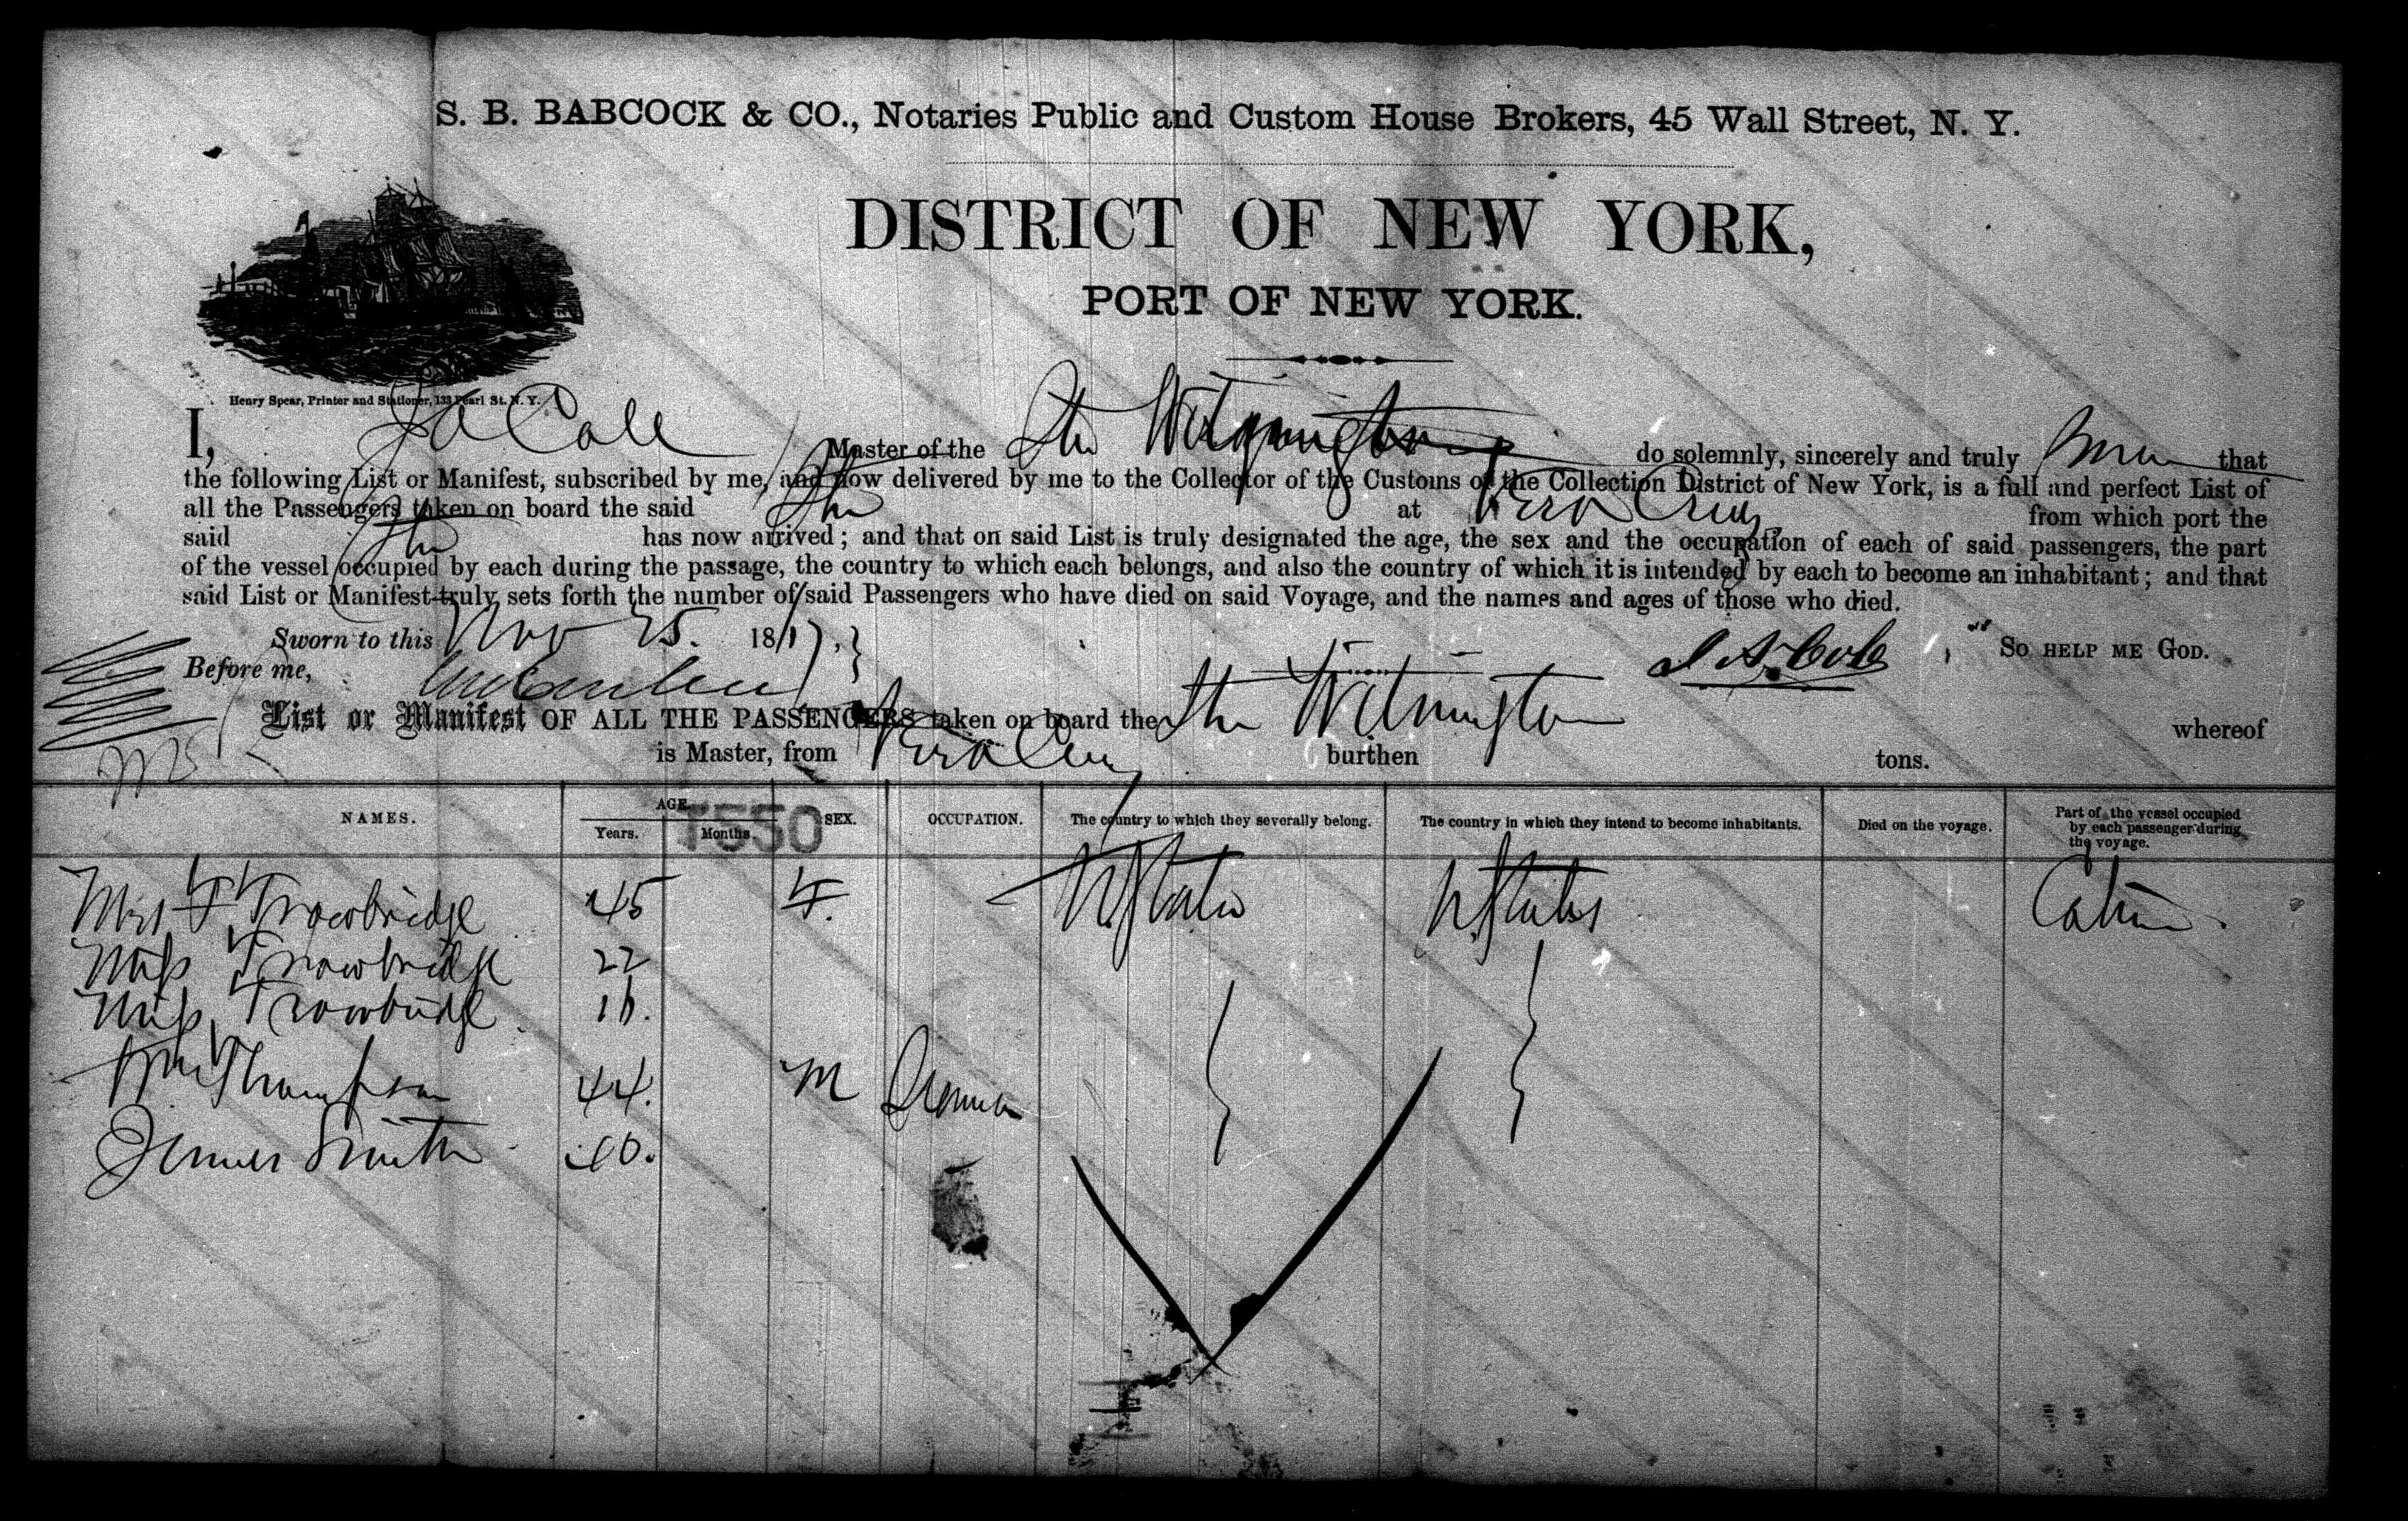 S. B. BABCOCK & CO., Notaries Public and Custom House Brokers, 45 Wall Street, N. Y.
DISTRICT OF NEW YORK,
PORT OF NEW YORK.
Henry Spear, Printer and Stationer, 133 Pearl St. N. Y.
I, J A Cole Master of the Str Wilmington do solemnly, sincerely and truly swear that
the following List or Manifest, subscribed by me, and now delivered by me to the Collector of the Customs of the Collection District of New York, is a full and perfect List of
all the Passengers taken on board the said Str at Vera Cruz from which port the
said Str has now arrived; and that on said List is truly designated the age, the sex and the occupation of each of said passengers, the part
of the vessel occupied by each during the passage, the country to which each belongs, and also the country of which it is intended by each to become an inhabitant; and that
said List or Manifest truly sets forth the number of said Passengers who have died on said Voyage, and the names and ages of those who died.
Sworn to this Nov 25. 187
Before me,
J A. Cole So HELP ME GOD.
List or Manifest OF ALL THE PASSENGERS taken on board the Str Wilmington whereof
is Master, from Vera Cruz burthen tons.
1550
NAMES. AGE. Years. Months. SEX. OCCUPATION. The country to which they severally belong. The country in which they intend to become inhabitants. Died on the voyage. Part of the vessel occupied by each passenger during the voyage.
Mrs F. Trowbridge 45 F. U. States U. States Cabin.
Miss Trowbridge 22
Miss Trowbridge 16.
Wm Thompson 44. M
James Smith 40.